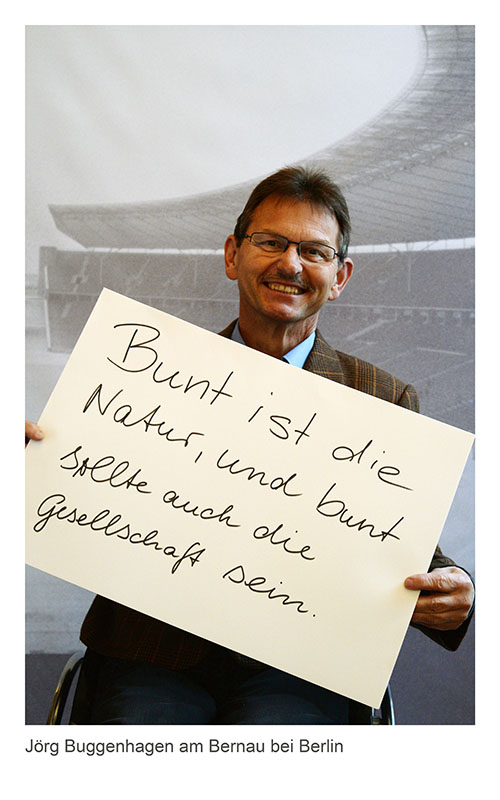 Bunt ist die
Natur, und bunt
sollte auch die
Gesellschaft sein.
Jörg Buggenhagen am Bernau bei Berlin